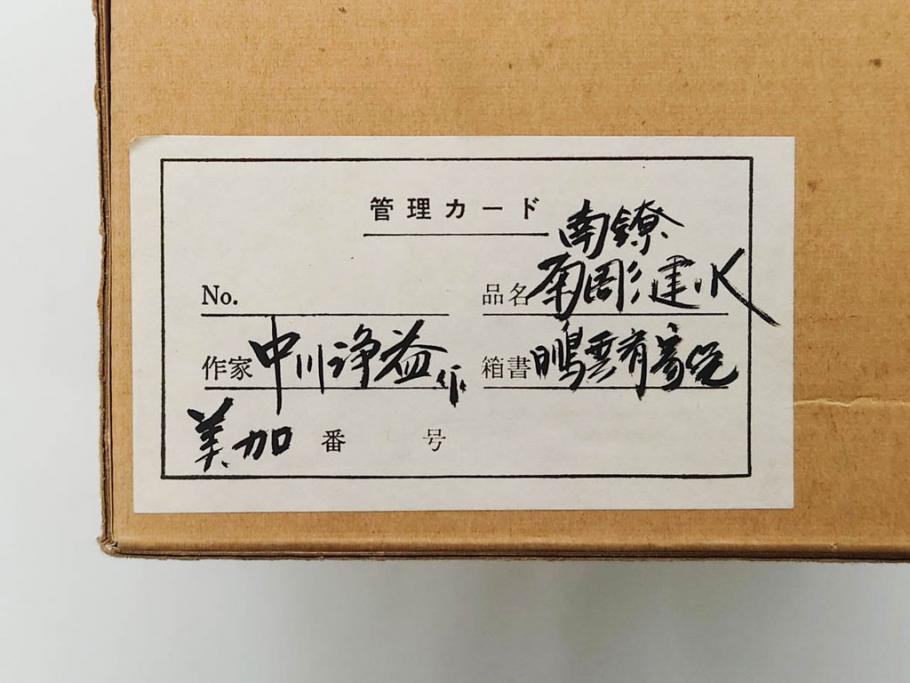 管理カード
南鐐
No.
品名 彫建水
作家 中川浄益作
箱書 鵬雲斉
美加 番 号